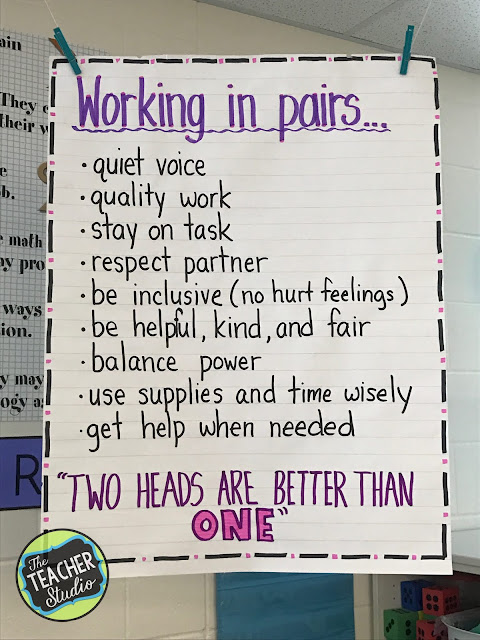 ain
They
their
math
ways
tion.
may
Working in pairs...
• quiet voice
• quality work
• stay on task
• respect partner
• be inclusive (no hurt feelings)
• be helpful, kind, and fair
• balance power
• use supplies and time wisely
• get help when needed
"TWO HEADS ARE BETTER THAN
ONE"
R
The
TEACHER
Studio